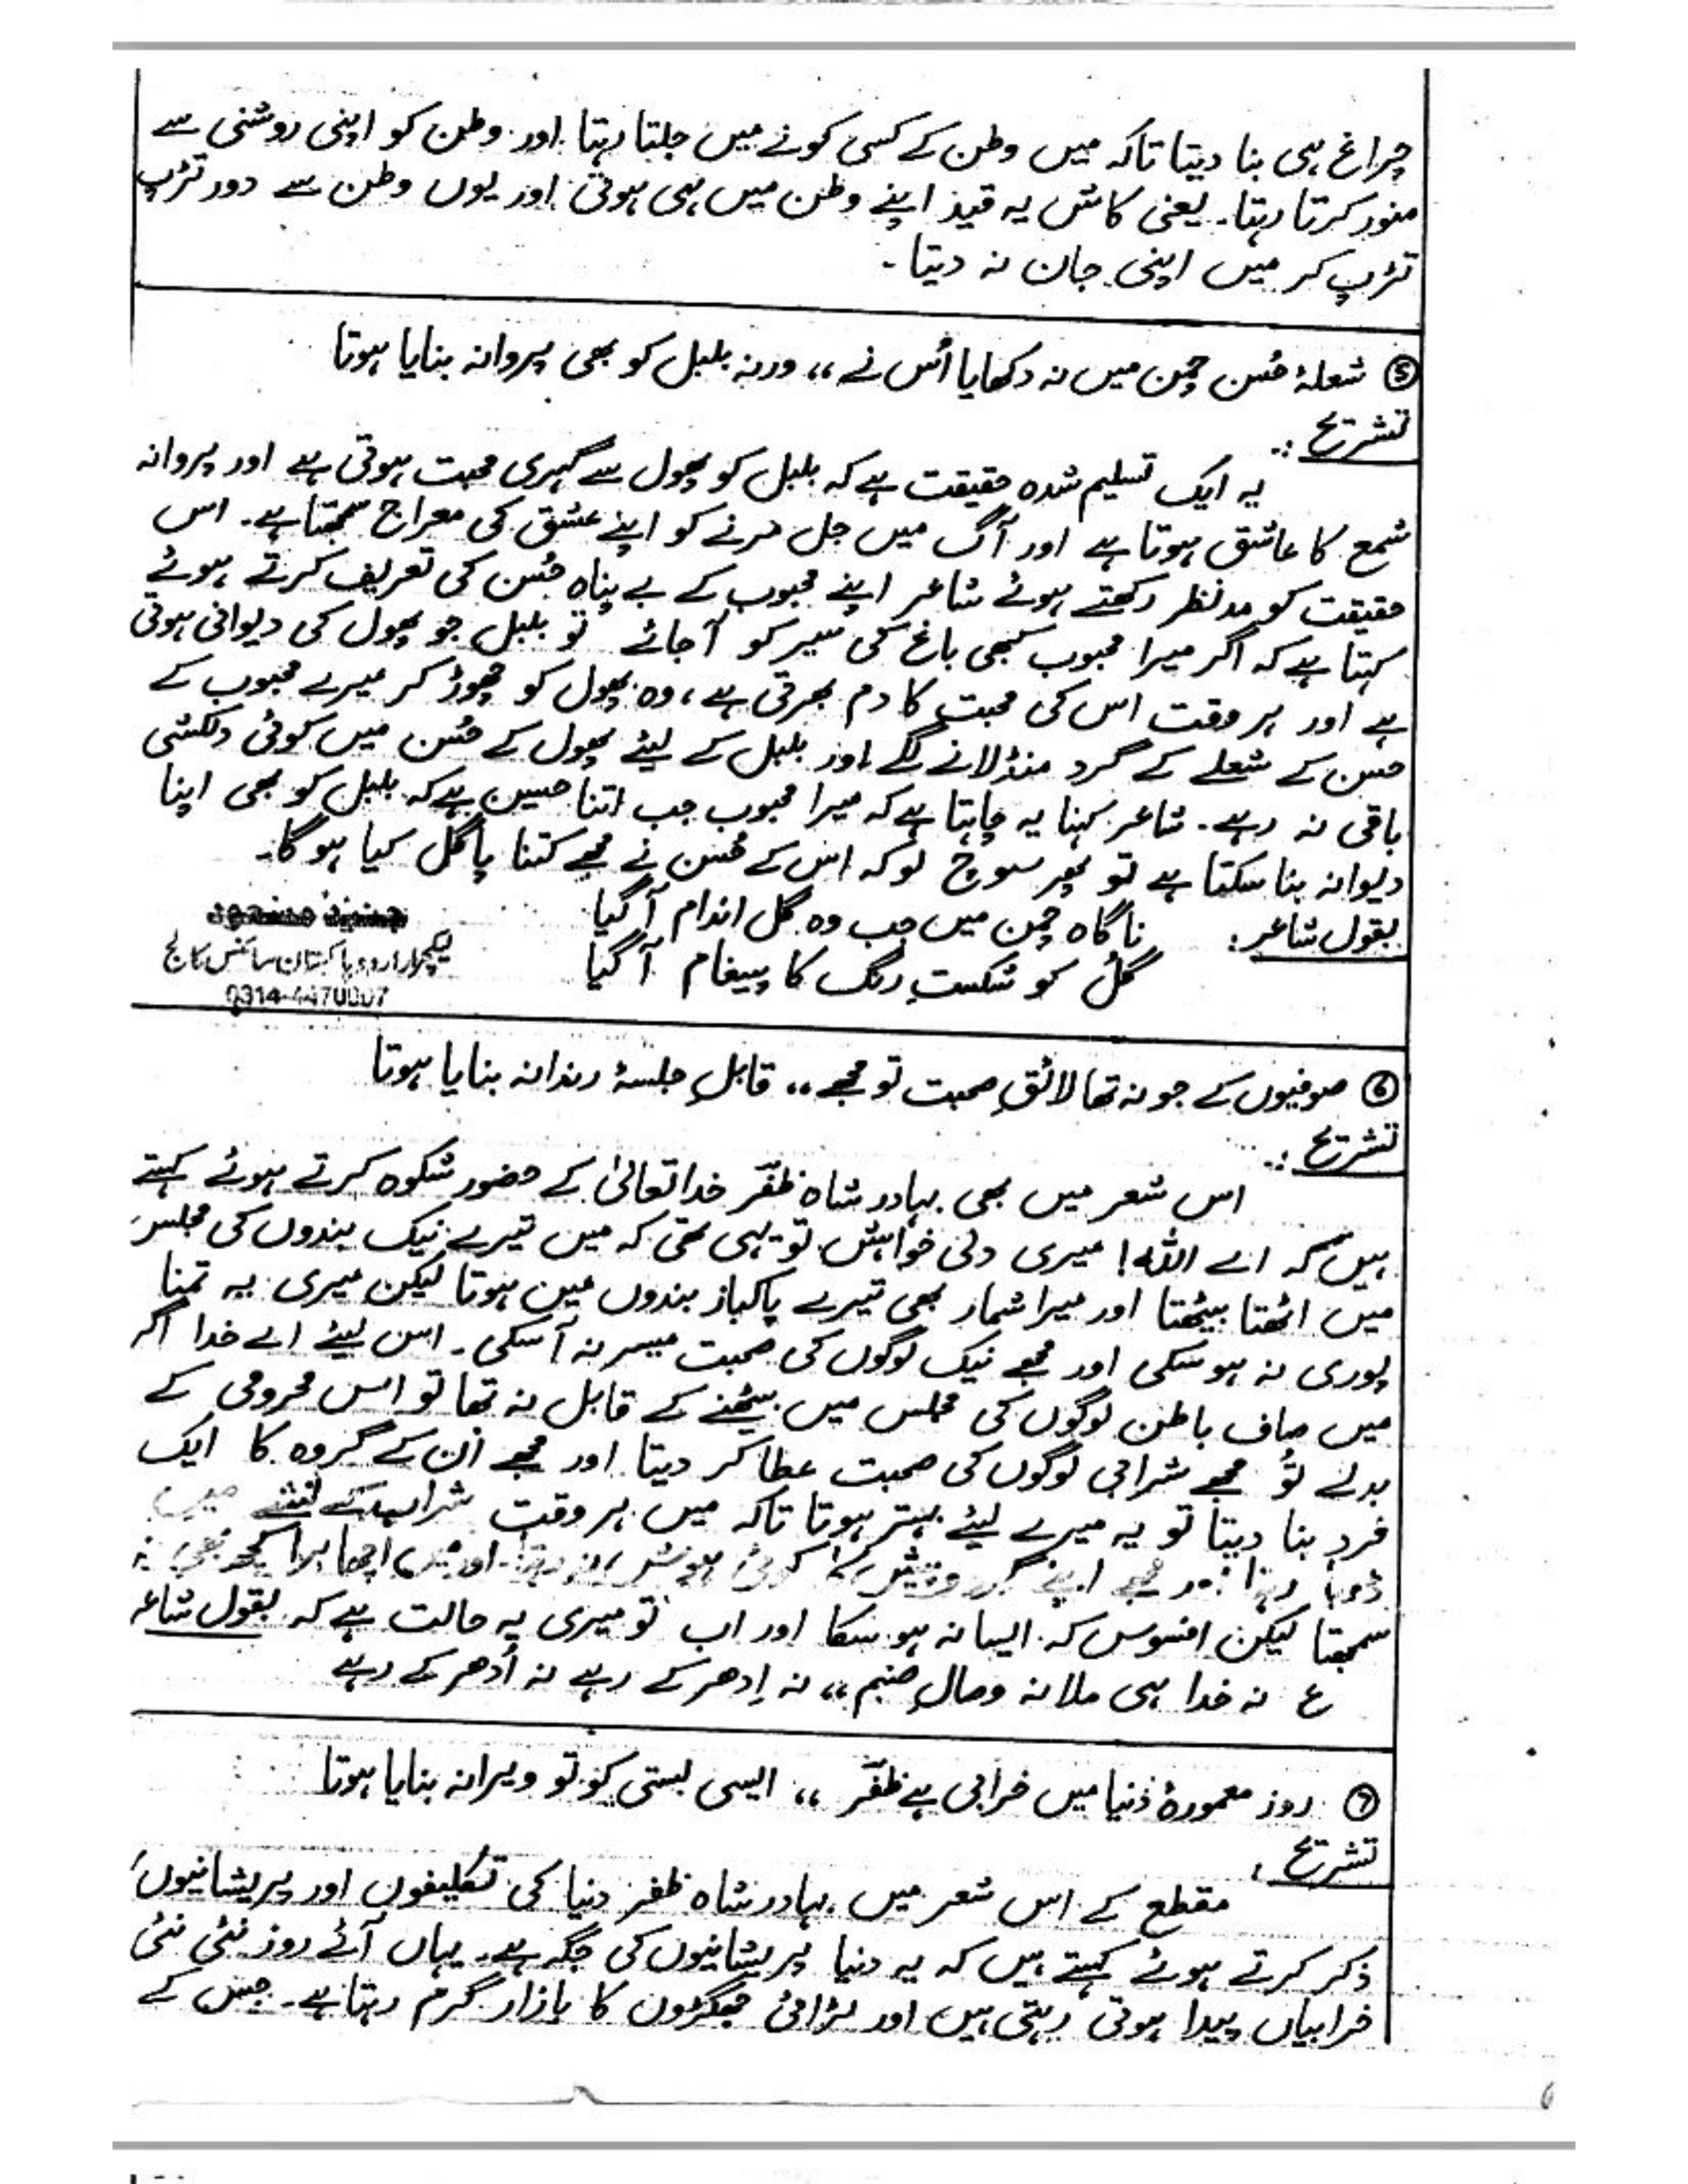 چراغ ہی بنا دیتا تاکہ میں وطن کے کسی کونے میں جلتا رہتا اور وطن کو اپنی روشنی سے
منور کرتا رہتا۔ یعنی کاش یہ قید اپنے وطن میں ہی ہوتی اور یوں وطن سے دور تڑپ
تڑپ کر میں اپنی جان نہ دیتا۔
⑤ شعلۂ حُسن چمن میں نہ دکھایا اُس نے ،، ورنہ بلبل کو بھی پروانہ بنایا ہوتا
تشریح :۔
یہ ایک تسلیم شدہ حقیقت ہے کہ بلبل کو پھول سے گہری محبت ہوتی ہے اور پروانہ
شمع کا عاشق ہوتا ہے اور آگ میں جل مرنے کو اپنے عشق کی معراج سمجھتا ہے۔ اس
حقیقت کو مدنظر رکھتے ہوئے شاعر اپنے محبوب کے بے پناہ حُسن کی تعریف کرتے ہوئے
کہتا ہے کہ اگر میرا محبوب کبھی باغ کی سیر کو آ جائے تو بلبل جو پھول کی دیوانی ہوتی
ہے اور ہر وقت اس کی محبت کا دم بھرتی ہے، وہ پھول کو چھوڑ کر میرے محبوب کے
حسن کے شعلے کے گرد منڈلانے لگے اور بلبل کے لیئے پھول کے حُسن میں کوئی دلکشی
باقی نہ رہے۔ شاعر کہنا یہ چاہتا ہے کہ میرا محبوب جب اتنا حسین ہے کہ بلبل کو بھی اپنا
دیوانہ بنا سکتا ہے تو پھر سوچ لو کہ اس کے حُسن نے مجھے کتنا پاگل کیا ہو گا۔
بقول شاعر: ناگاہ چمن میں جب وہ گل اندام آ گیا
گُل کو شکستِ رنگ کا پیغام آ گیا
لیکچرار اردو پاکستان سائنس کالج
0314-4470007
⑥ صوفیوں کے جو نہ تھا لائقِ صحبت تو مجھے ،، قابلِ جلسۂ رندانہ بنایا ہوتا
تشریح :۔
اس شعر میں بھی بہادر شاہ ظفر خدا تعالیٰ کے حضور شکوہ کرتے ہوئے کہتے
ہیں کہ اے اللہ! میری دلی خواہش تو یہی تھی کہ میں تیرے نیک بندوں کی مجلس
میں اٹھتا بیٹھتا اور میرا شمار بھی تیرے پاکباز بندوں میں ہوتا لیکن میری یہ تمنا
پوری نہ ہو سکی اور مجھے نیک لوگوں کی صحبت میسر نہ آ سکی۔ اس لیئے اے خدا اگر
میں صاف باطن لوگوں کی مجلس میں بیٹھنے کے قابل نہ تھا تو اس محرومی کے
بدلے تُو مجھے شرابی لوگوں کی صحبت عطا کر دیتا اور مجھے اُن کے گروہ کا ایک
فرد بنا دیتا تو یہ میرے لیئے بہتر ہوتا تاکہ میں ہر وقت شراب کے نشے میں
ڈوبا رہتا اور مجھے اپنے گرد و پیش کا کوئی ہوش نہ رہتا اور میں اچھا برا کچھ بھی نہ
سمجھتا لیکن افسوس کہ ایسا نہ ہو سکا اور اب تو میری یہ حالت ہے کہ بقول شاعر
ع نہ خدا ہی ملا نہ وصالِ صنم ،، نہ اِدھر کے رہے نہ اُدھر کے رہے
⑦ روز معمورۂ دُنیا میں خرابی ہے ظفر ،، ایسی بستی کو تو ویرانہ بنایا ہوتا
تشریح :
مقطع کے اس شعر میں بہادر شاہ ظفر دنیا کی تکلیفوں اور پریشانیوں
ذکر کرتے ہوئے کہتے ہیں کہ یہ دنیا پریشانیوں کی جگہ ہے۔ یہاں آئے روز نئی نئی
خرابیاں پیدا ہوتی رہتی ہیں اور لڑائی جھگڑوں کا بازار گرم رہتا ہے۔ جس کے